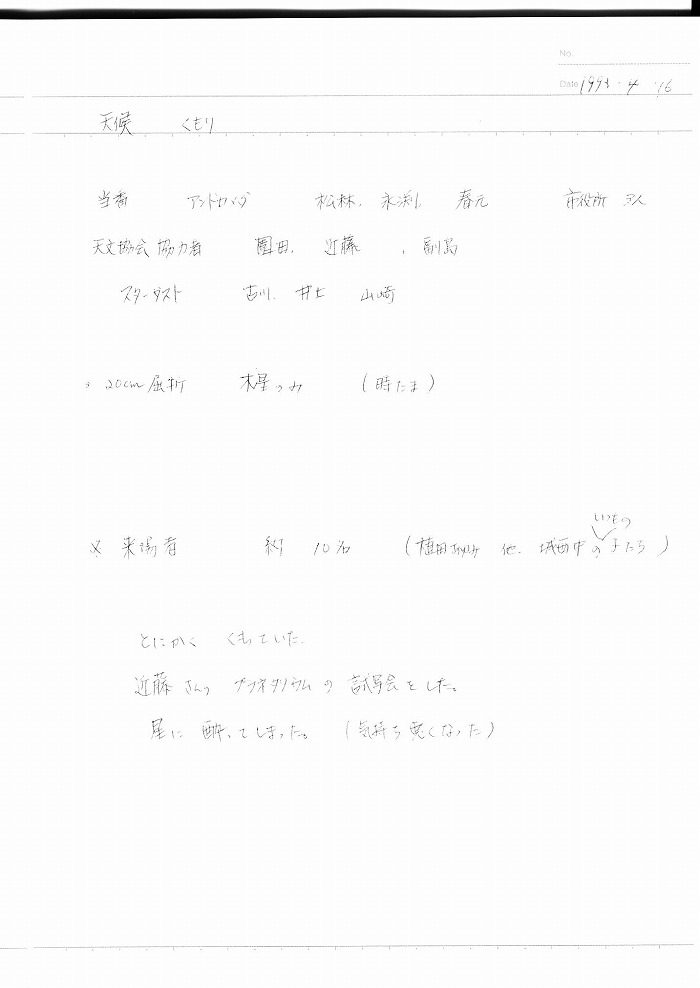 No.
Date 1993・4・16
天候 くもり
当番 アンドロメダ 松林、永渕、春元 市役所 3人
天文協会協力者 園田、近藤、副島
スターダスト 古川、井上 山崎
・20cm屈折 木星のみ (時たま)
いつもの
※ 来場者 約10名 (植田 他、城西中の子たち)
とにかく くもっていた。
近藤さんの プラネタリウムの試写会をした。
星に酔ってしまった。(気持ち悪くなった)